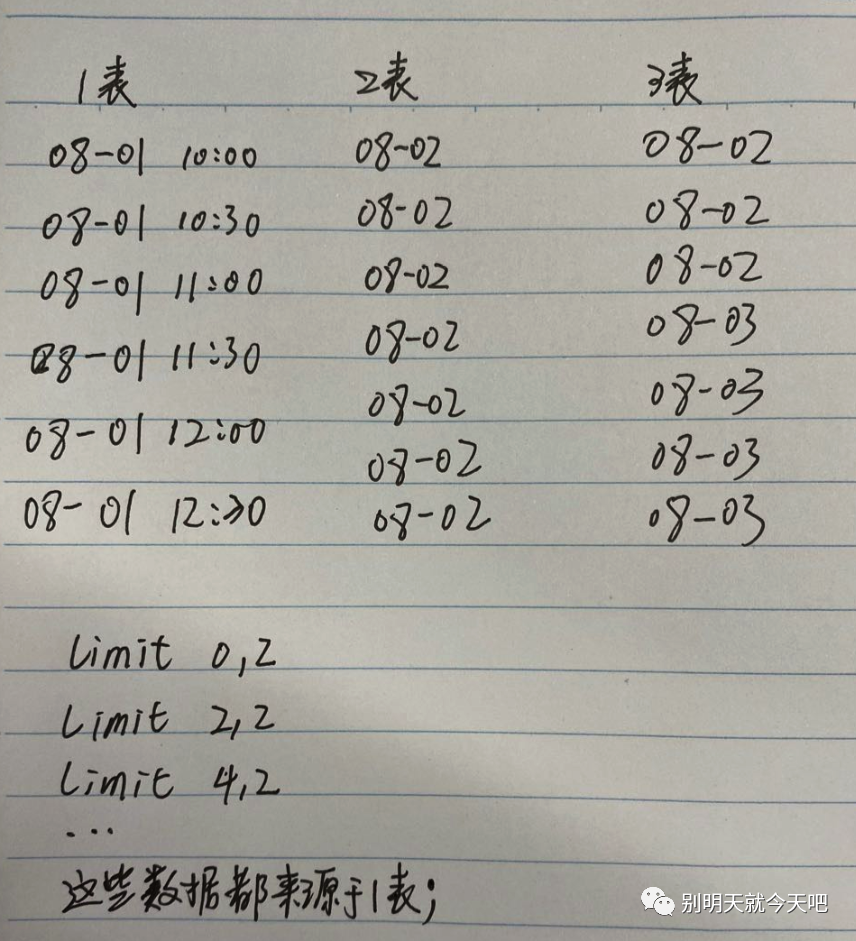 1表 2表 3表
08-01 10:00 08-02 08-02
08-01 10:30 08-02 08-02
08-01 11:00 08-02 08-02
08-01 11:30 08-02 08-03
08-01 12:00 08-02 08-03
08-02 08-03
08-01 12:30 08-02 08-03
limit 0,2
limit 2,2
limit 4,2
...
这些数据都来源于1表;
别明天就今天吧